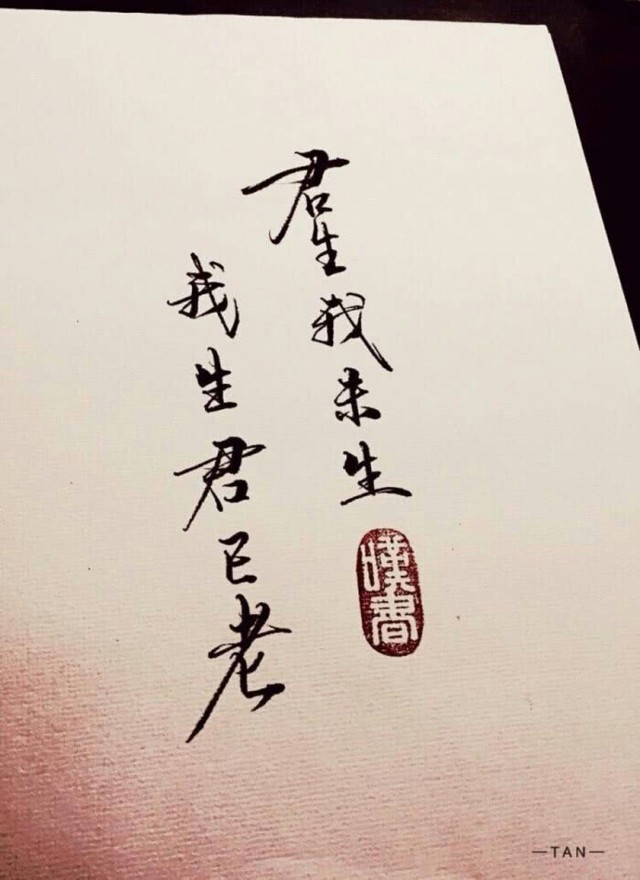 君生我未生
我生君已老
—TAN—